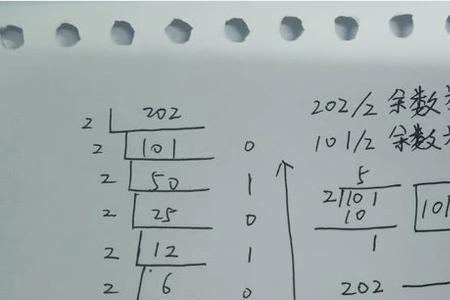 2 202
2 101 0
2 50 1
2 25 0
2 12 1
2 6 0
202/2 余数
101/2 余数
5
2 101
10
1
101
202